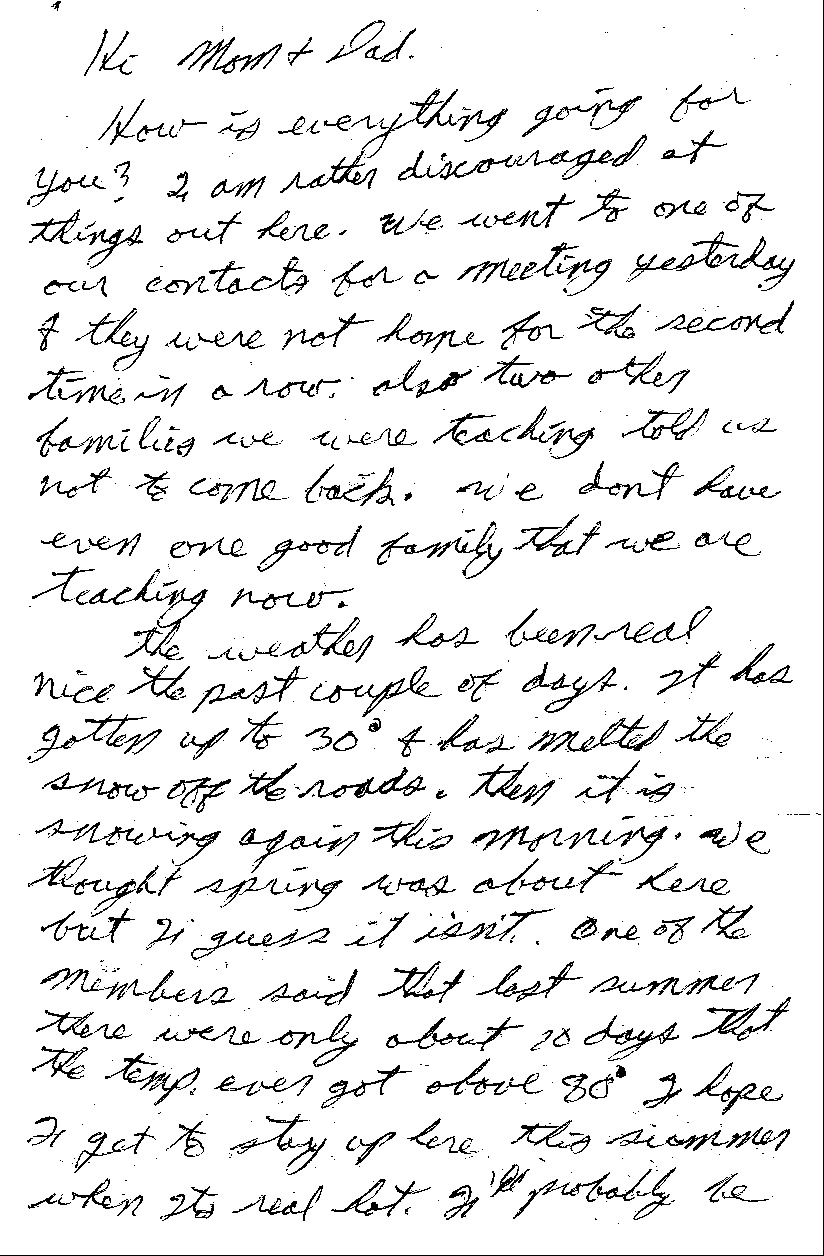 Hi Mom + Dad.
How is everything going for
you? I am rather discouraged at
things out here. We went to one of
our contacts for a meeting yesterday
& they were not home for the second
time in a row. also two other
families we were teaching told us
not to come back. We dont have
even one good family that we are
teaching now.
The weather has been real
nice the past couple of days. It has
gotten up to 30° & has melted the
snow off the roads. Then it is
snowing again this morning. We
thought spring was about here
but I guess it isn't. One of the
members said that last summer
there were only about 20 days that
the temp. ever got above 80° I hope
I get to stay up here this summer
when its real hot. I'll probably be